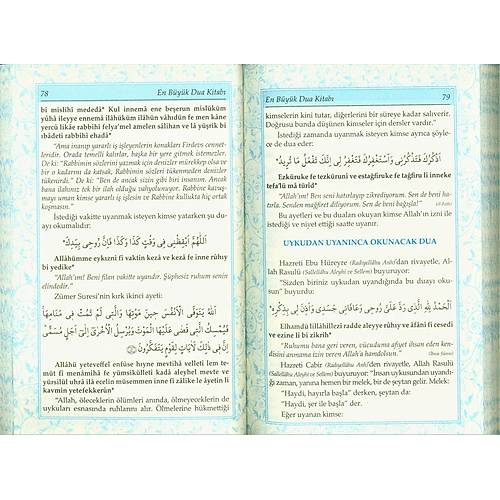 78 En Büyük Dua Kitabı
bi mislihî mededâ* Kul innemâ ene beşerun mislüküm
yûhâ ileyye ennemâ ilâhüküm ilâhün vâhdün fe men kâne
yercû likâe rabbihî felya'mel amelen sâlihan ve lâ yüşrik bi
ıbâdeti rabbihî ehadâ*
"Ama inanıp yararlı iş işleyenlerin konakları Firdevs cennet-
leridir. Orada temelli kalırlar, başka bir yere gitmek istemezler.
De ki: "Rabbimin sözlerini yazmak için denizler mürekkep olsa ve o
kadarını da katsak, Rabbimin sözleri tükenmeden denizler
tükenirdi." De ki: "Ben de ancak sizin gibi bir insanım. Ancak
bana ilahınız tek bir ilah olduğu vahyolunuyor. Rabbine kavuş-
mayı uman yararlı iş işlesin ve Rabbine kullukta hiç ortak
koşmasın."
İstediği vakitte uyanmak isteyen kimse yatarken şu du-
ayı okumalıdır:
اَللّٰهُمَّ اَيْقِظْنِى فِى وَقْتِ كَذَا وَكَذَا فَاِنَّ رُوحِى بِيَدِكَ
Allâhümme eykıznî fi vaktin kezâ ve kezâ fe inne rûhiy
bi yedike*
"Allah'ım! Beni filan vakitte uyandır. Şüphesiz ruhum senin
elindedir."
Zümer Suresi'nin kırk ikinci ayeti:
اَللّٰهُ يَتَوَفَّى الْاَنْفُسَ حِينَ مَوْتِهَا وَالَّتِى لَمْ تَمُتْ فِى مَنَامِهَا
فَيُمْسِكُ الَّتِى قَضٰى عَلَيْهَا الْمَوْتَ وَيُرْسِلُ الْاُخْرٰى اِلٰى اَجَلٍ مُسَمًّى
اِنَّ فِى ذٰلِكَ لَاٰيَاتٍ لِقَوْمٍ يَتَفَكَّرُونَ
Allâhü yeteveffel enfüse hıyne mevtihâ velletî lem te-
müt fî menâmihâ fe yümsikülletî kadâ aleyhel mevte ve
yürsilül uhrâ ilâ ecelin müsemmen inne fî zâlike le âyetin li
kavmin yetefekkerûn*
"Allah, öleceklerin ölümleri anında, ölmeyeceklerin de
uykuları esnasında ruhlarını alır. Ölmelerine hükmettiği
En Büyük Dua Kitabı 79
kimselerin kini tutar, diğerlerini bir süreye kadar salıverir.
Doğrusu bunda düşünen kimseler için dersler vardır."
İstediği zamanda uyanmak isteyen kimse ayrıca şöyle-
ce de dua eder:
اَذْكُرُكَ فَتَذْكُرُنِى وَاَسْتَغْفِرُكَ فَتَغْفِرُ لِى اِنَّكَ تَفْعَلُ مَا تُرِيدُ
Ezküruke fe tezküruni ve estağfiruke fe tağfiru lî inneke
tefa'lü mâ türîd*
"Allah'ım! Ben seni hatırlayıp zikrediyorum. Sen de beni ha-
tırla. Senden mağfiret diliyorum. Sen de beni bağışla."
Bu ayetleri ve bu duaları okuyan kimse Allah'ın izni ile
istediği ve niyet ettiği saatte uyanır.
UYKUDAN UYANINCA OKUNACAK DUA
Hazreti Ebu Hüreyre (Radıyellâhu Anh)'den rivayetle, Al-
lah Rasulü (Sallellâhu Aleyhi ve Sellem) buyuruyor:
"Sizden biriniz uykudan uyandığında bu duayı oku-
sun" buyurdu:
اَلْحَمْدُ لِلّٰهِ الَّذِى رَدَّ عَلَىَّ رُوحِى وَعَافَانِى فِى جَسَدِى وَاَذِنَ لِى بِذِكْرِهِ
Elhamdü lillâhillezî radde aleyye rûhıy ve âfânî fî cesedî
ve ezine lî bi zikrihî*
"Ruhumu bana geri veren, vücuduma afiyet ihsan eden ken-
disini anmama izin veren Allah'a hamdolsun."
Hazreti Cabir (Radıyellâhu Anh)'den rivayetle, Allah Rasulü
(Sallellâhu Aleyhi ve Sellem) buyuruyor: "İnsan uykusundan uyandı-
ğı zaman, yanına hemen bir melek, bir de şeytan gelir. Melek:
"Haydi, hayırla başla" derken, şeytan da:
"Haydi, şer ile başla" der.
Eğer uyanan kimse: